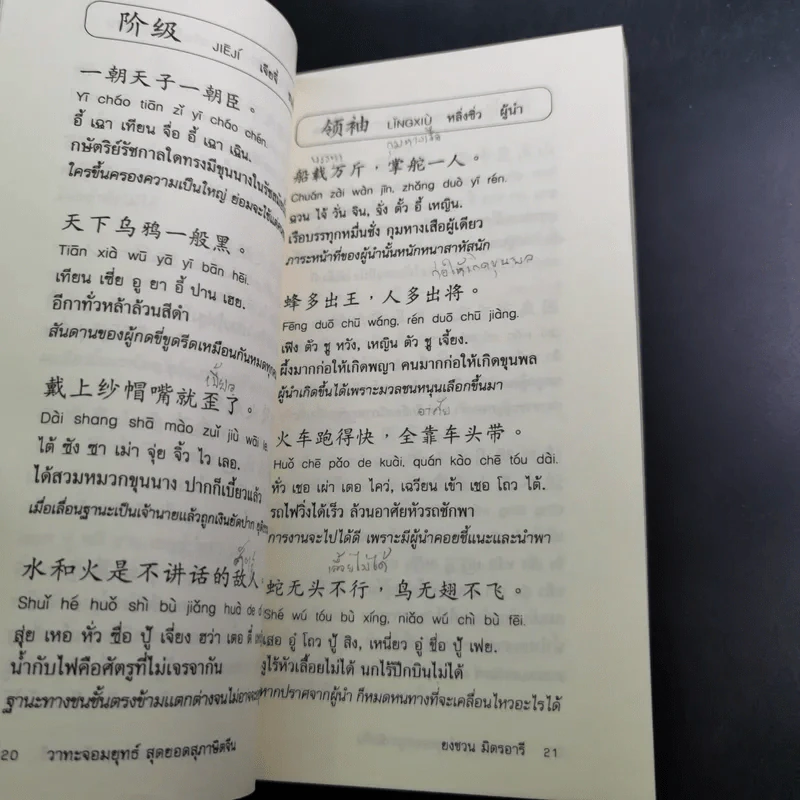 阶级 JIĒJÍ เจียจี๋
一朝天子一朝臣。
Yī cháo tiān zǐ yī cháo chén.
อี้ เฉา เทียน จื่อ อี้ เฉา เฉิน.
กษัตริย์รัชกาลใดทรงมีขุนนางใน
ใครขึ้นครองความเป็นใหญ่ ย่อมจะใช้
天下乌鸦一般黑。
Tiān xià wū yā yī bān hēi.
เทียน เซี่ย อู ยา อี้ ปาน เฮย.
อีกาทั่วหล้าล้วนสีดำ
สันดานของผู้กดขี่ขูดรีดเหมือนกันหมด
เบี้ยว
戴上纱帽嘴就歪了。
Dài shang shā mào zuǐ jiù wāi le
ไต้ ซัง ซา เม่า จุ่ย จิ้ว ไว เลอ.
ได้สวมหมวกขุนนาง ปากก็เบี้ยวแล้ว
เมื่อเลื่อนฐานะเป็นเจ้านายแล้วถูกเงินยัดปาก
ศัตรู
水和火是不讲话的敌人
Shuǐ hé huǒ shì bù jiǎng huà de
สุ่ย เหอ หั่ว ชื่อ ปู้ เจี่ยง ฮว่า เตอ ตี๋
น้ำกับไฟคือศัตรูที่ไม่เจรจากัน
ฐานะทางชนชั้นตรงข้ามแตกต่างจนไม่อาจ
20 วาทะจอมยุทธ์ สุดยอดสุภาษิตจีน
领袖 LǏNGXIÙ หลิ่งซิ่ว ผู้นำ
บรรทุก กุมหางเสือ
船载万斤，掌舵一人。
Chuán zài wàn jīn, zhǎng duò yī rén.
ฉวน ไจ้ วั่น จิน, จั่ง ตั้ว อี้ เหญิน.
เรือบรรทุกหมื่นชั่ง กุมหางเสือผู้เดียว
ภาระหน้าที่ของผู้นำนั้นหนักหนาสาหัสนัก
ก่อให้เกิดขุนพล
蜂多出王，人多出将。
Fēng duō chū wáng, rén duō chū jiàng.
เฟิง ตัว ชู หวัง, เหญิน ตัว ชู เจี้ยง.
ผึ้งมากก่อให้เกิดพญา คนมากก่อให้เกิดขุนพล
ผู้นำเกิดขึ้นได้เพราะมวลชนหนุนเลือกขึ้นมา
อาศัย
火车跑得快，全靠车头带。
Huǒ chē pǎo de kuài, quán kào chē tóu dài.
หั่ว เชอ เผ่า เตอ ไคว่, เฉวียน เข้า เชอ โถว ไต้.
รถไฟวิ่งได้เร็ว ล้วนอาศัยหัวรถชักพา
การงานจะไปได้ดี เพราะมีผู้นำคอยชี้แนะและนำพา
เลื้อยไม่ได้
蛇无头不行，鸟无翅不飞。
Shé wú tóu bù xíng, niǎo wú chì bù fēi.
เสอ อู๋ โถว ปู้ สิง, เหนี่ยว อู๋ ชื่อ ปู้ เฟย.
งูไร้หัวเลื้อยไม่ได้ นกไร้ปีกบินไม่ได้
หากปราศจากผู้นำ ก็หมดหนทางที่จะเคลื่อนไหวอะไรได้
ยงชวน มิตรอารี 21